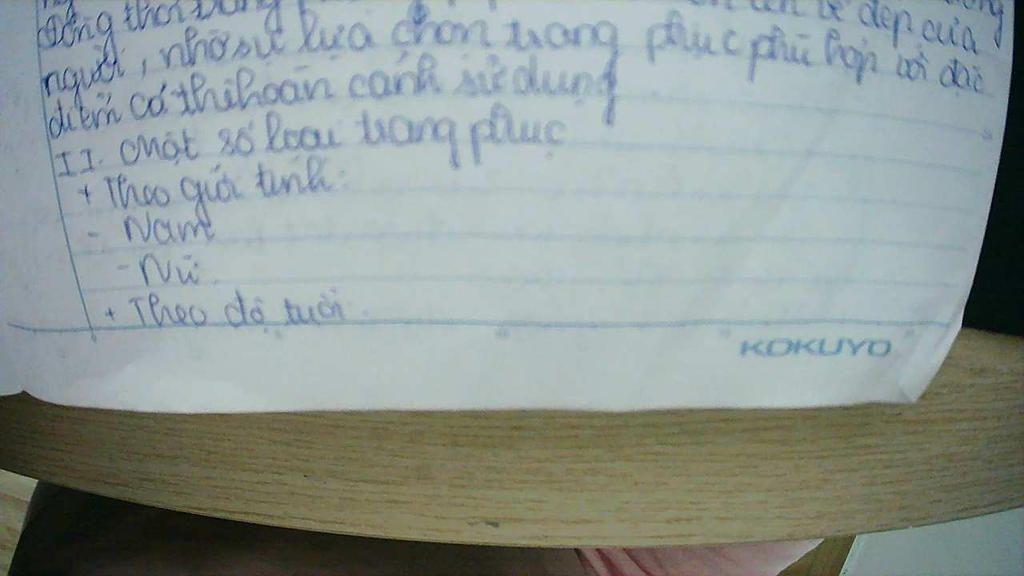 đồng thời trang
vẻ đẹp của
người, nhờ sự lựa chọn trang phục phù hợp với đặc
điểm cơ thể hoàn cảnh sử dụng
II. Một số loại trang phục
+ Theo giới tính:
- Nam
- Nữ.
+ Theo độ tuổi.
KOKUYO